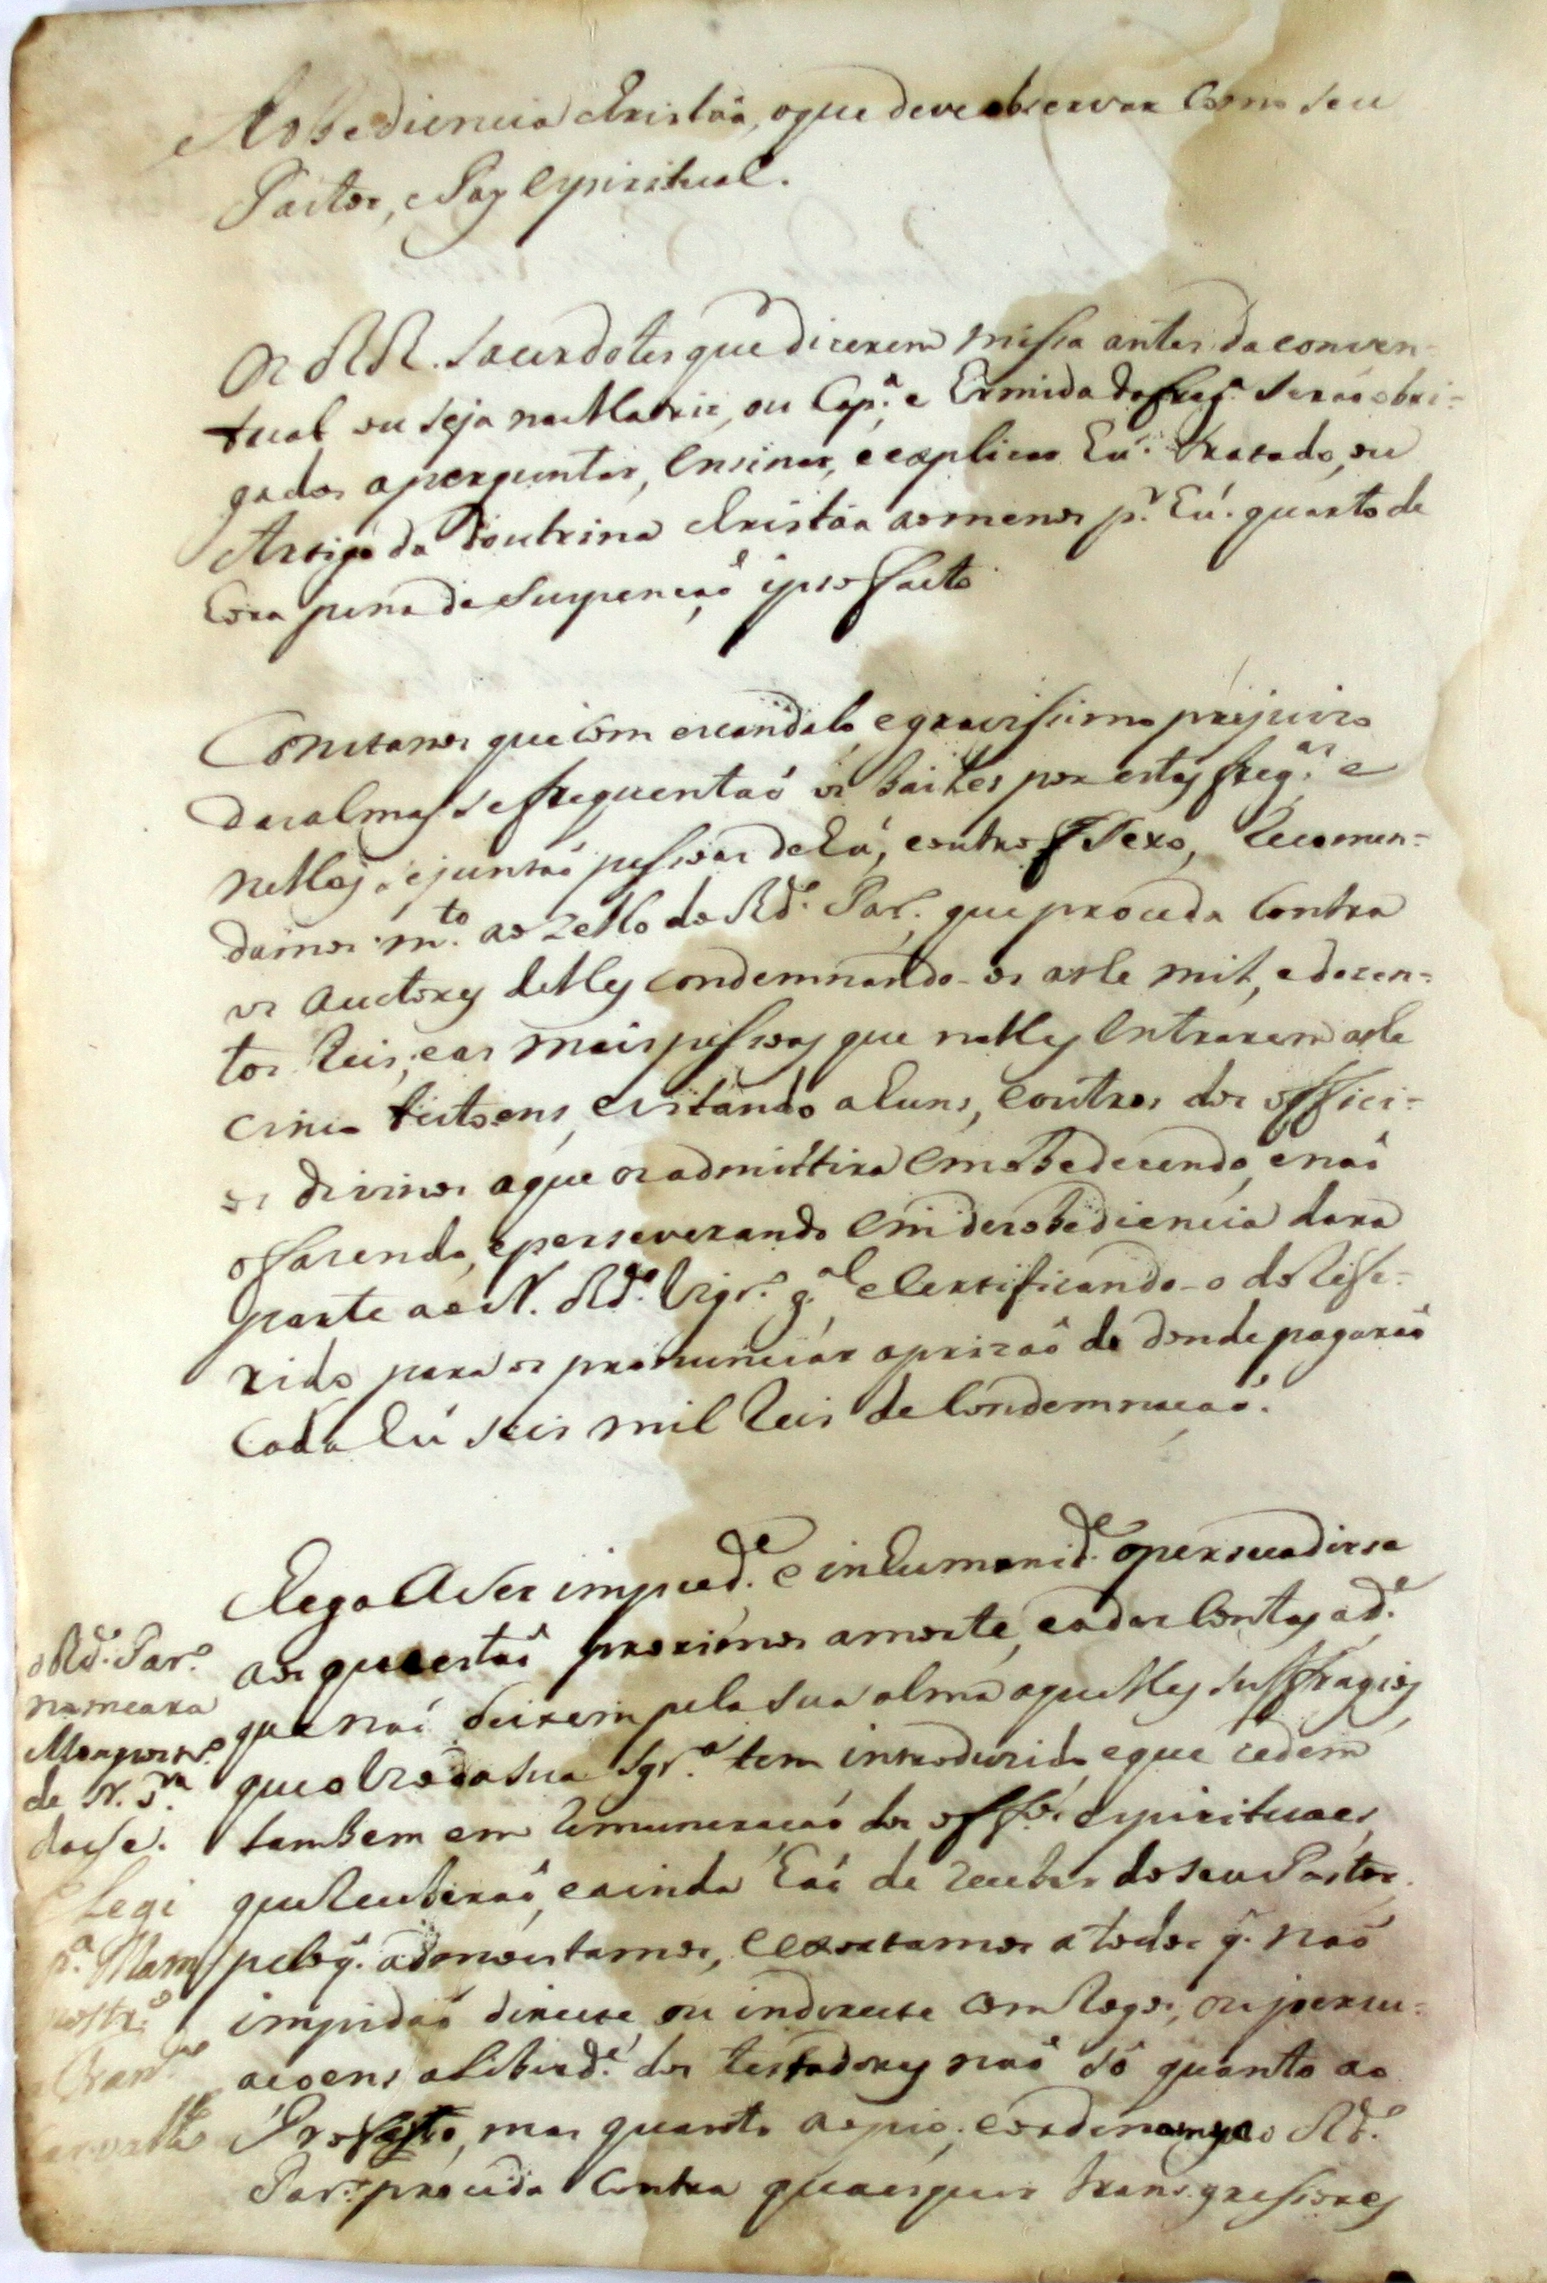 Aobediencia christãa, oque deve observar Como seu
Pastor, e Pay Espiritual.
Os RR. Sacerdotes que dicerem missa antes da conven-
tual ou seja na Matriz, ou Cap.ª e Ermida da freg.ª Seraõ obri-
gados aperguntar, Ensinar, e explicar hũ. tratado, ou
Artigo da doutrina christãa aomenos p.r hũ. quarto de
hora pena de Suspençaõ ipso facto
Constanos que com escandalo, e gravissimo prejuizo
das almas se frequentaõ os bailes por estas freg.as e
nelles se juntaõ pessoas de hũ, e outro Sexo, Recomen-
damos m.to ao Zello do Rd.º Par.º que proceda Contra
os auctores delles condemnando-os a mil, e dozen-
tos Reis, e as mais pessoas que nelles Entrarem a
cinco tostoens, evitando a huns, e outros dos offici-
os divinos aque os admittira Em obedecendo, e naõ
o fazendo, e perseverando Em desobediencia dara
parte ao N. Rd.º Vigr.º g.al e Certificando-o do Refe-
rido para os pronunciar aprizaõ de donde pagaraõ
Cada hũ seis mil Reis de Condemnaçaõ.
Chega a ser impied.e e inhumanid.e o persuadirse
aos que estaõ proximos amorte, e a dar Contas a d.s
que naõ deixem pela sua alma aquelles suffragios
que o Uzo da sua Igr.ª tem introduzido, e que cedem
tambem em Remuneraçaõ dos off.os espirituaes,
que Receberaõ, e ainda haõ de receber do seu Pastor,
pelo q. admoestamos, e exortamos a todos q. naõ
impidaõ directe ou indirecte com Rogos, ou persu-
acoens a liberd.e dos testadores naõ só quanto ao
Profano, mas quanto ao pio; e ordenamos ao Rd.º
Par.º proceda Contra quaesquer transgressores
o Rd.º Par.º
nomeara
Mamposter.º
de N. S.ra
da Se.
Elegi
p.ª Mam
postr.º